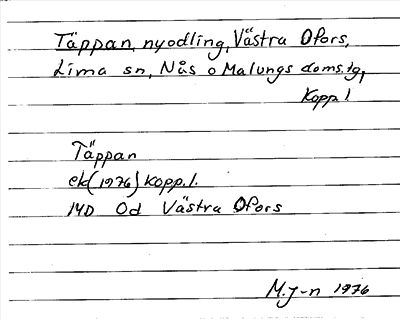 Täppan, nyodling, Västra Ofors,
Lima sn, Nås o Malungs doms.tg,
Kopp.l
Täppan
ek(1976) Kopp.l.
14D Od Västra Ofors
M.J-n 1976